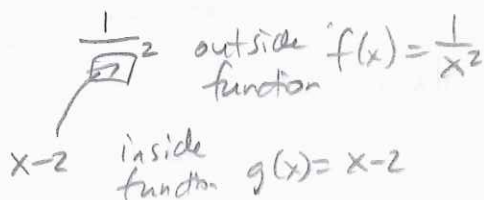 1/□² outside function f(x) = 1/x²
x-2 inside function g(x) = x-2